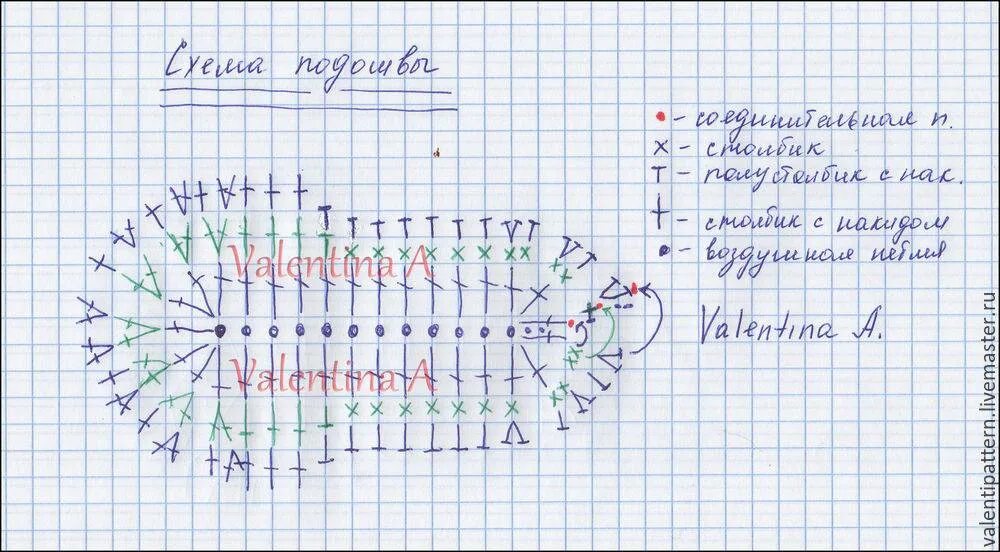 Схема подошвы
• - соединительная п.
× - столбик
T - полустолбик с нак.
† - столбик с накидом
• - воздушная петля
Valentina A.
Valentina A
Valentina A
valentipattern.livemaster.ru